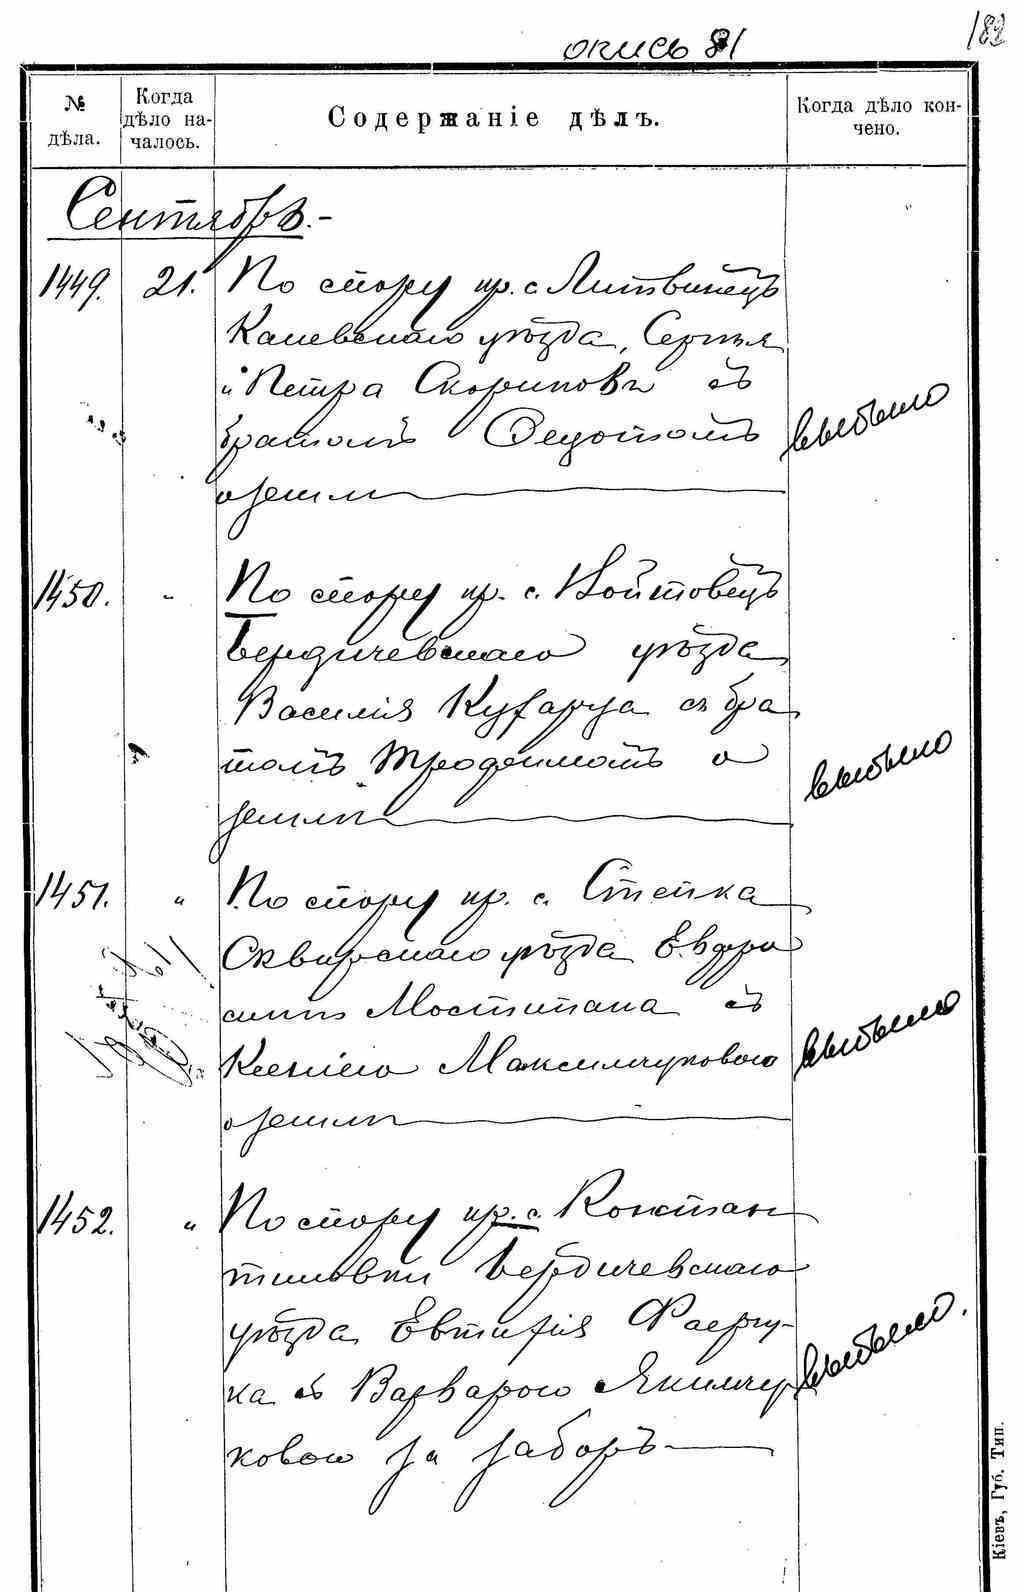 182
опись 81
№ дѣла.
Когда дѣло на-
чалось.
Содержаніе дѣлъ.
Когда дѣло кон-
чено.
Сентябрь.-
1449. 21. По спору кр. с. Литвинецъ
Каневскаго уѣзда, Сергѣя
и Петра Скориковъ съ
братомъ Федотомъ
о землѣ
выбыло
1450. " По спору кр. с. Войтовецъ
Бердичевскаго уѣзда
Василія Кухарца съ бра
томъ Трофимомъ о
землѣ
выбыло
1451. " По спору кр. с. Степка
Сквирскаго уѣзда Евфро
синіи Мостипана съ
Ксеніею Максимчуковою
о землѣ
выбыло
1452. " По спору кр. с. Констан
тиновки Бердичевскаго
уѣзда Евтихія
ка съ Варварою Якимчу
ковою за заборъ
выбыло.
Кіевъ, Губ. Тип.